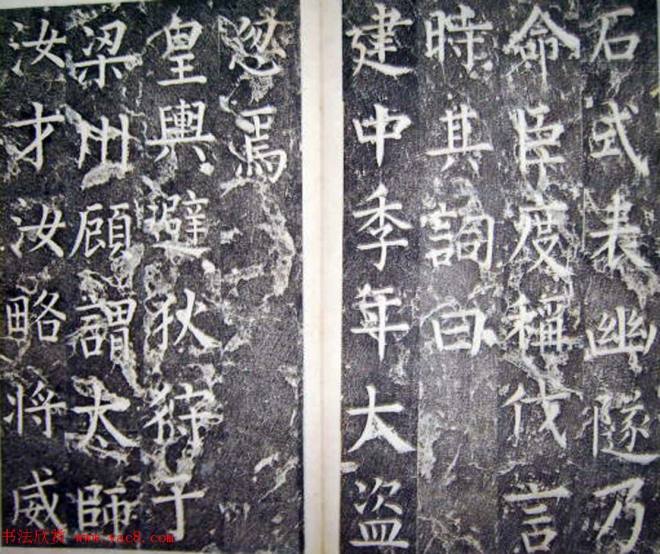 石式表幽隧乃
命臣度稱伐言
時其詞曰
建中季年大盜
忽焉
皇輿避狄狩于
梁州顧謂太師
汝才汝略將威
书法欣赏 www.yac8.com